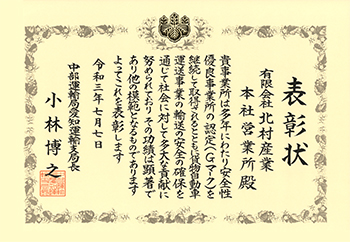 表彰状
有限会社北村産業
本社営業所 殿
貴事業所は多年にわたり安全性
優良事業所の認定（Gマーク）を
継続して取得されるとともに貨物自動車
運送事業の輸送の安全の確保を
通じて社会に対して多大な貢献に
努められておりその功績は顕著で
あり他の模範となるものであります
よってこれを表彰します
令和三年七月七日
中部運輸局愛知運輸支局長
小林博之